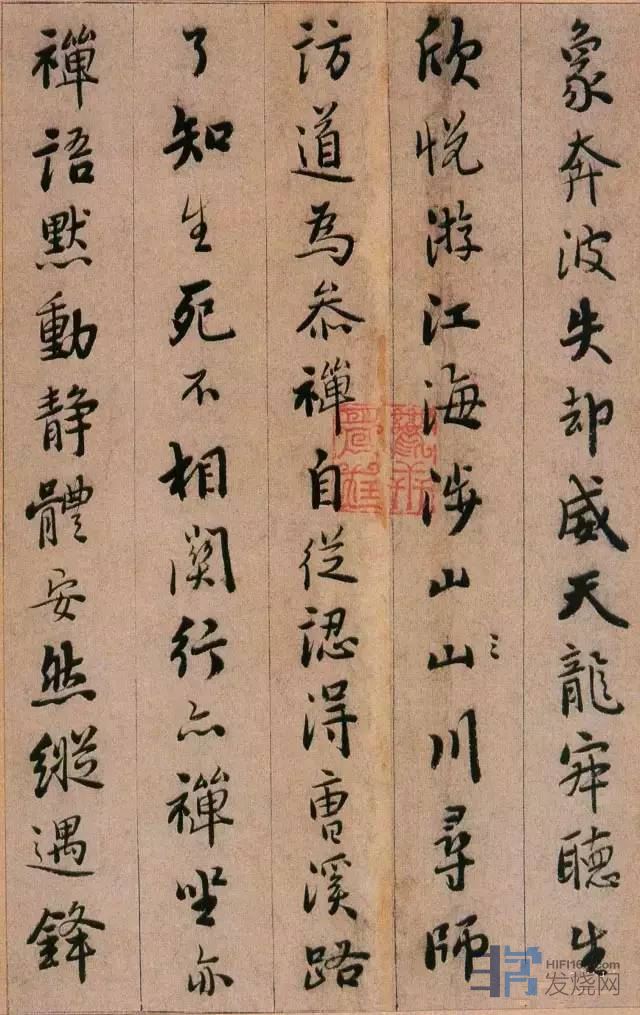 象奔波失却威天龍寂聽生
欣悅游江海涉山山川尋師
訪道為參禪自從認得曹溪路
了知生死不相關行亦禪坐亦
禪語默動静體安然縱遇鋒
HIFI16.com
发烧网